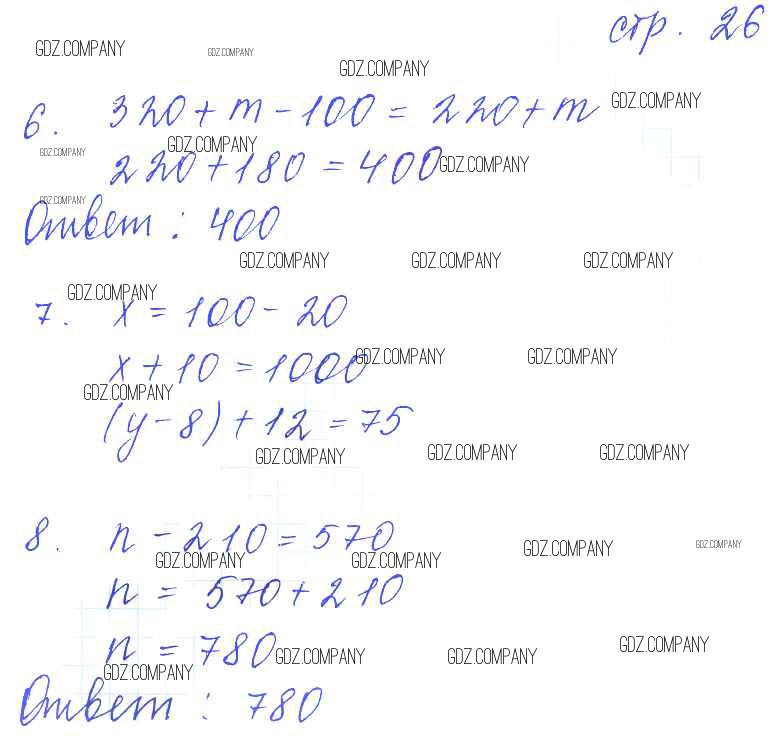 стр. 26
GDZ.COMPANY GDZ.COMPANY
GDZ.COMPANY
6. 320 + m - 100 = 220 + m GDZ.COMPANY
GDZ.COMPANY GDZ.COMPANY
220 + 180 = 400 GDZ.COMPANY
GDZ.COMPANY
Ответ : 400
GDZ.COMPANY GDZ.COMPANY GDZ.COMPANY
GDZ.COMPANY
7. x = 100 - 20
x + 10 = 1000 GDZ.COMPANY GDZ.COMPANY
GDZ.COMPANY
(y - 8) + 12 = 75
GDZ.COMPANY GDZ.COMPANY GDZ.COMPANY
8. n - 210 = 570 GDZ.COMPANY GDZ.COMPANY
GDZ.COMPANY GDZ.COMPANY
n = 570 + 210
n = 780 GDZ.COMPANY GDZ.COMPANY GDZ.COMPANY
GDZ.COMPANY
Ответ : 780